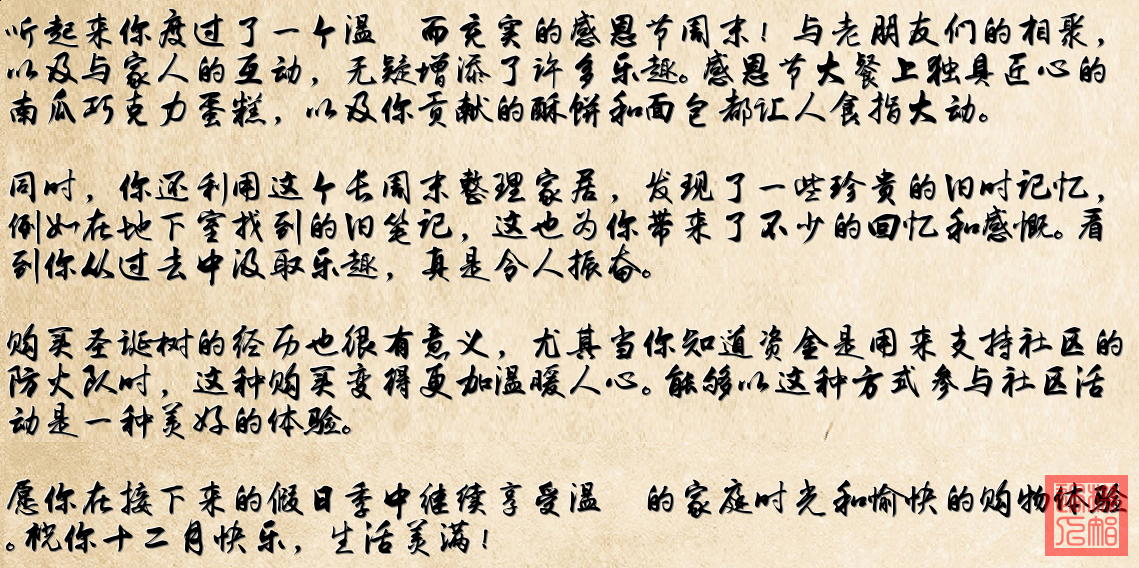 听起来你度过了一个温 而充实的感恩节周末！与老朋友们的相聚，
以及与家人的互动，无疑增添了许多乐趣。感恩节大餐上独具匠心的
南瓜巧克力蛋糕，以及你贡献的酥饼和面包都让人食指大动。
同时，你还利用这个长周末整理家居，发现了一些珍贵的旧时记忆，
例如在地下室找到的旧笔记，这也为你带来了不少的回忆和感慨。看
到你从过去中汲取乐趣，真是令人振奋。
购买圣诞树的经历也很有意义，尤其当你知道资金是用来支持社区的
防火队时，这种购买变得更加温暖人心。能够以这种方式参与社区活
动是一种美好的体验。
愿你在接下来的假日季中继续享受温 的家庭时光和愉快的购物体验
。祝你十二月快乐，生活美满！